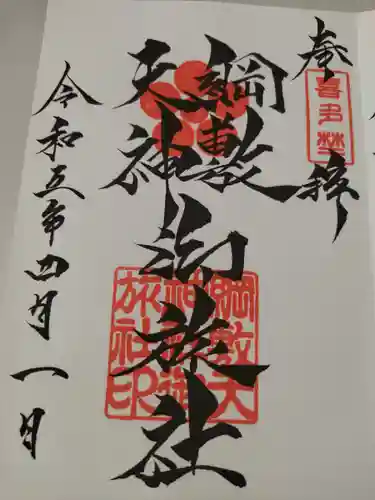 奉拝
喜多埜
綱敷
天神
御旅社
綱敷天
神御
旅社印
令和五年四月一日